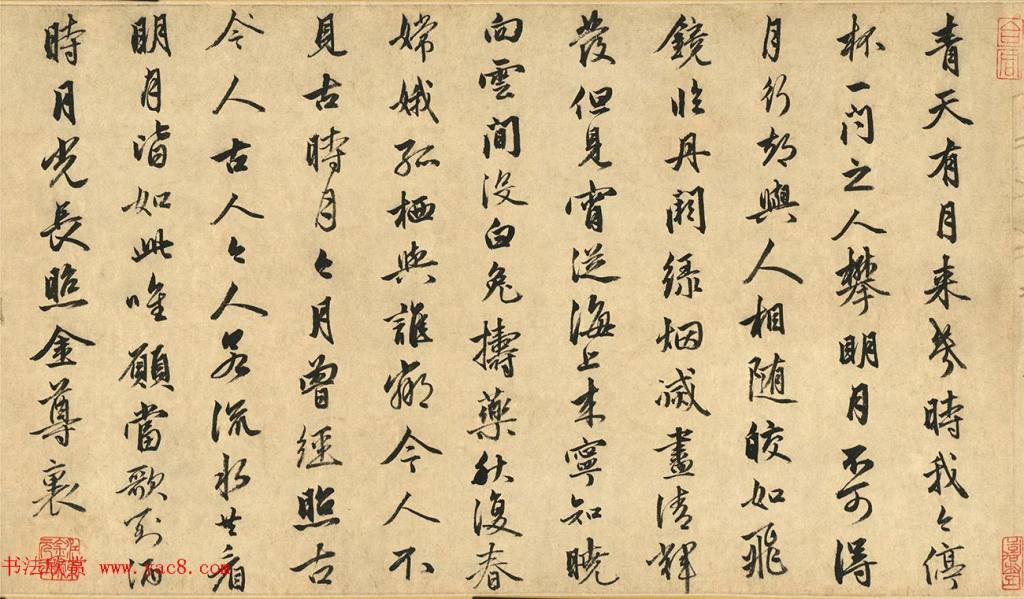 青天有月来幾時我々停
杯一問之人攀明月不可得
月行却與人相随皎如飛
鏡臨丹闕緑烟滅盡清輝
發但見宵從海上来寧知曉
向雲間没白兔擣藥秋復春
嫦娥孤栖與誰鄰今人不
見古時月々月曾經照古
今人古人々人若流水共看
明月皆如此唯願當歌對酒
時月光長照金尊裏
书法欣赏 www.yac8.com